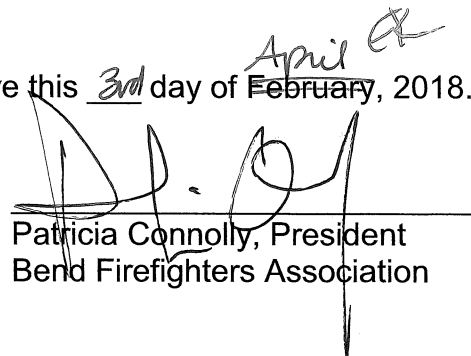 April
e this 3rd day of February, 2018.
Patricia Connolly, President
Bend Firefighters Association